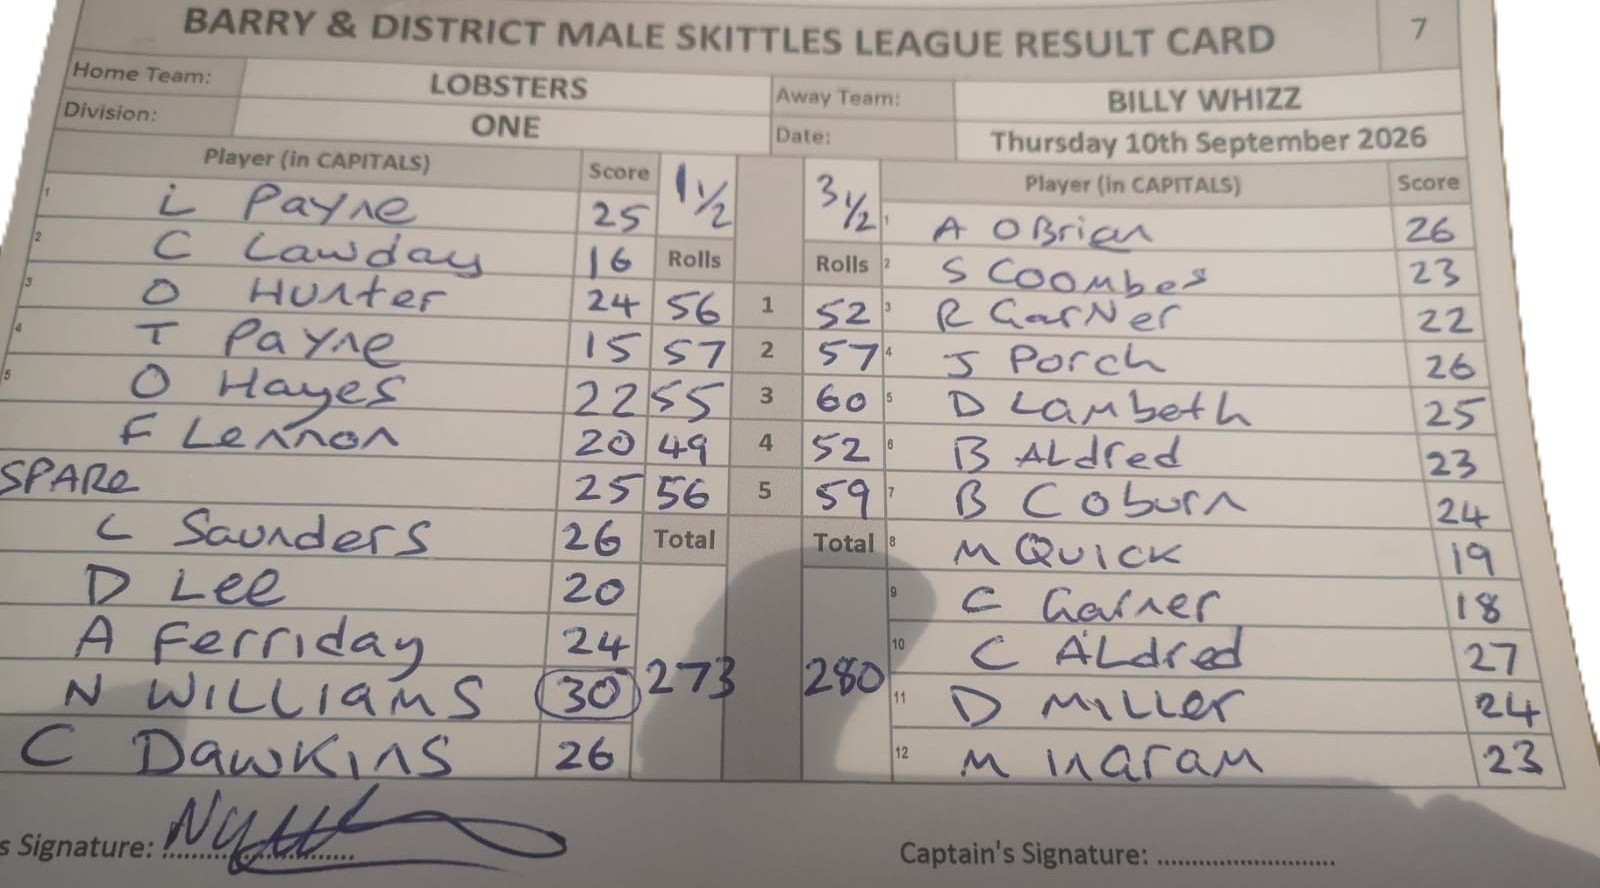 BARRY & DISTRICT MALE SKITTLES LEAGUE RESULT CARD 7
Home Team: LOBSTERS Away Team: BILLY WHIZZ
Division: ONE Date: Thursday 10th September 2026
Player (in CAPITALS) Score 1 1/2 3 1/2 Player (in CAPITALS) Score
1 L Payne 25 1 A OBrien 26
2 C Lawday 16 Rolls Rolls 2 S Coombes 23
3 O Hunter 24 56 1 52 3 R Garner 22
4 T Payne 15 57 2 57 4 J Porch 26
5 O Hayes 22 55 3 60 5 D Lambeth 25
F Lennon 20 49 4 52 6 B Aldred 23
SPARe 25 56 5 59 7 B Coburn 24
L Saunders 26 Total Total 8 M Quick 19
D Lee 20 9 C Garner 18
A Ferriday 24 10 C Aldred 27
N Williams 30 273 280 11 D Miller 24
C Dawkins 26 12 M Ingram 23
s Signature: Captain's Signature: